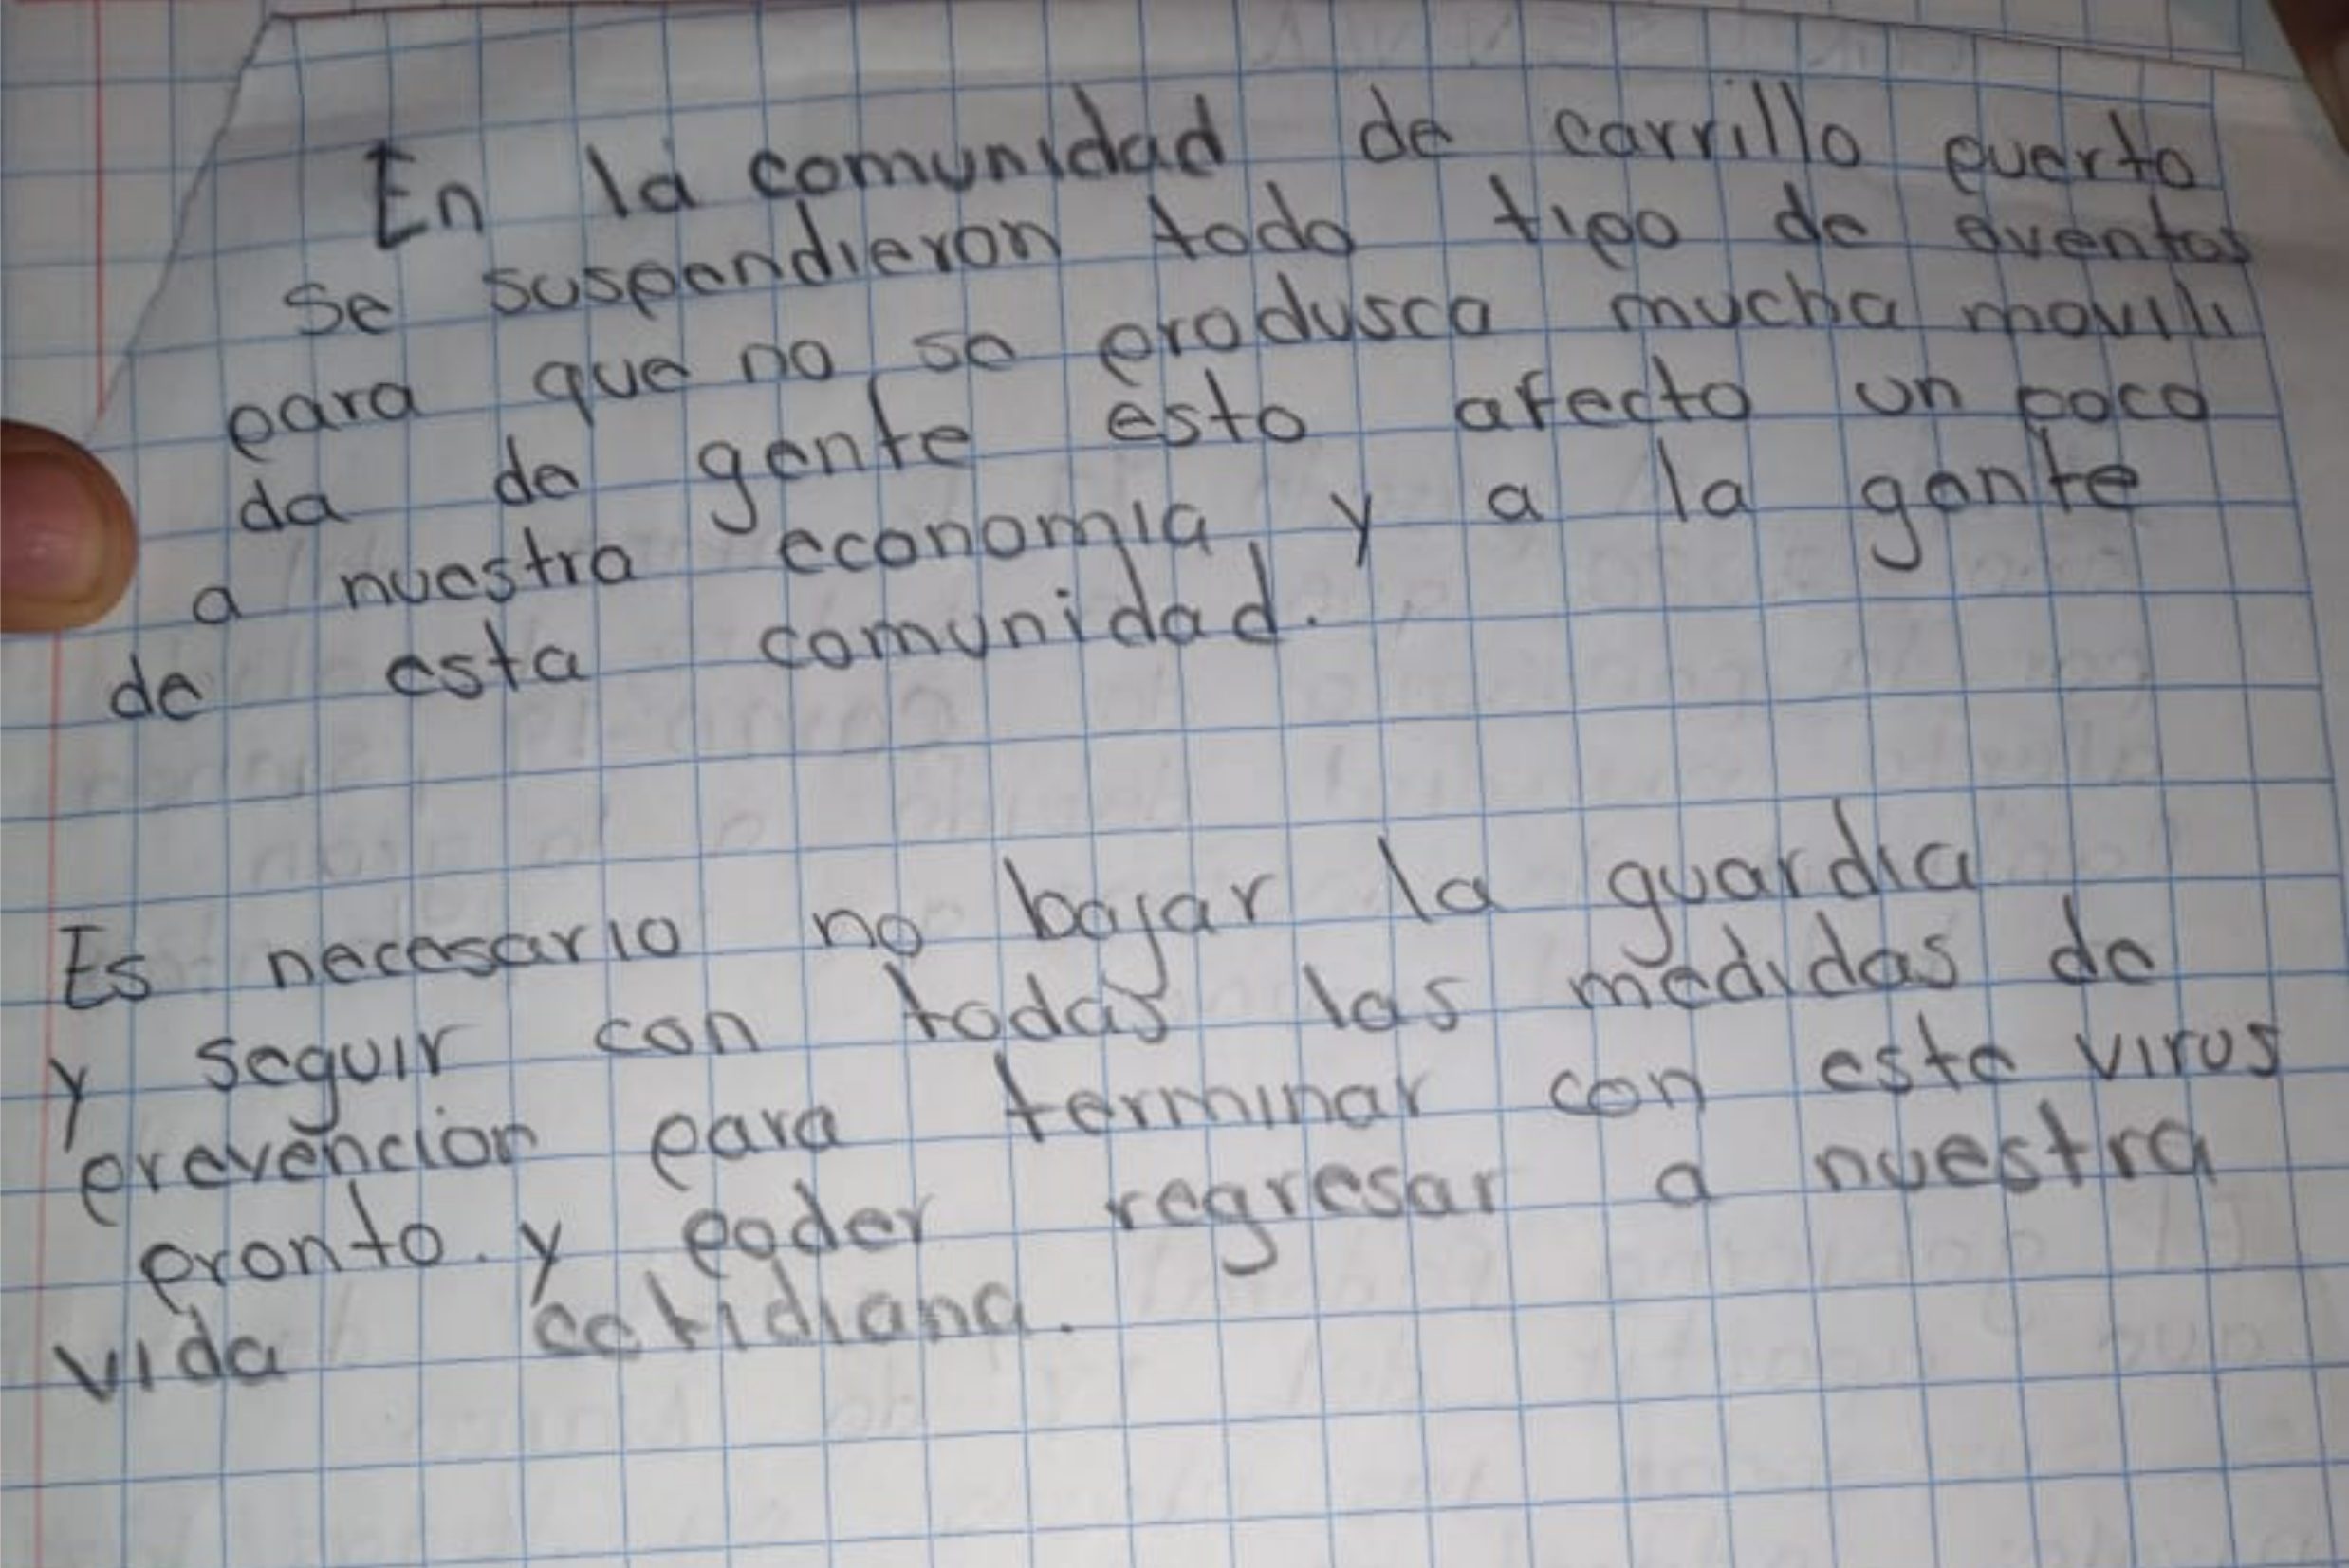 En la comunidad de carrillo puerto
se suspendieron todo tipo de eventos
para que no se produsca mucha movili
da de gente esto afecto un poco
a nuestra economia, y a la gente
de esta comunidad.
Es necesario no bajar la guardia
y seguir con todas las medidas de
prevencion para terminar con este virus
pronto. y poder regresar a nuestra
vida cotidiana.